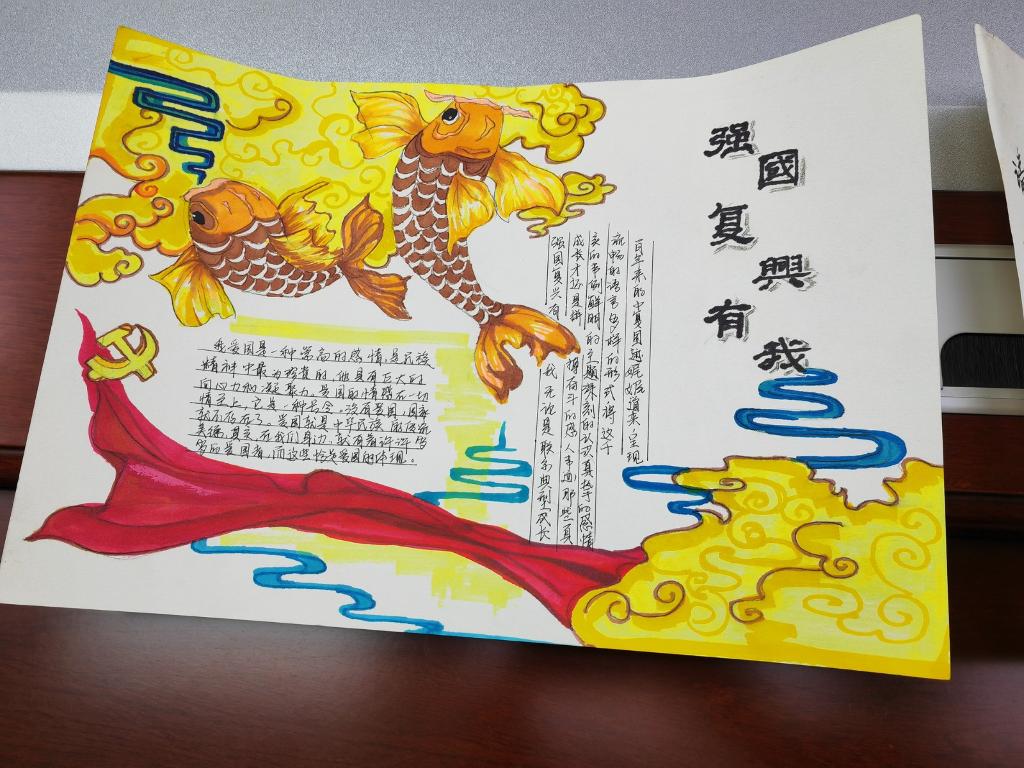 强國
复興
有我
百年来的中国娓娓道来呈现
流畅的语言多样的形式将这于
实的事例鲜明的主题深刻的认识真挚的感情
成长才还是拼搏奋斗的感人事迹那些真
强国复兴有我无论是典型成长
我爱国是一种崇高的感情，是民族
精神中最为珍贵的，他具有巨大的
向心力和凝聚力。爱国的情在一切
情之上，它是一种，没有爱国，国家
就不存在了。爱国就是中华民族的传统
美德，其实在我们身边，就有着许许多
多的爱国者，而这些恰是爱国的体现。